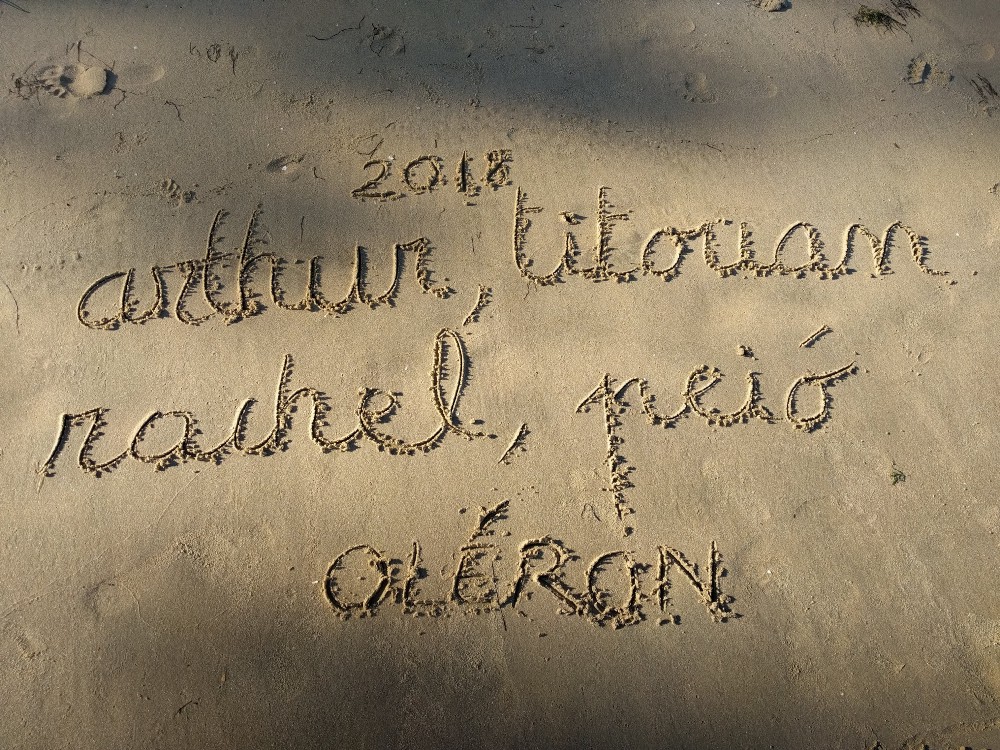 2018
arthur, titouan
rachel, peió
OLÉRON